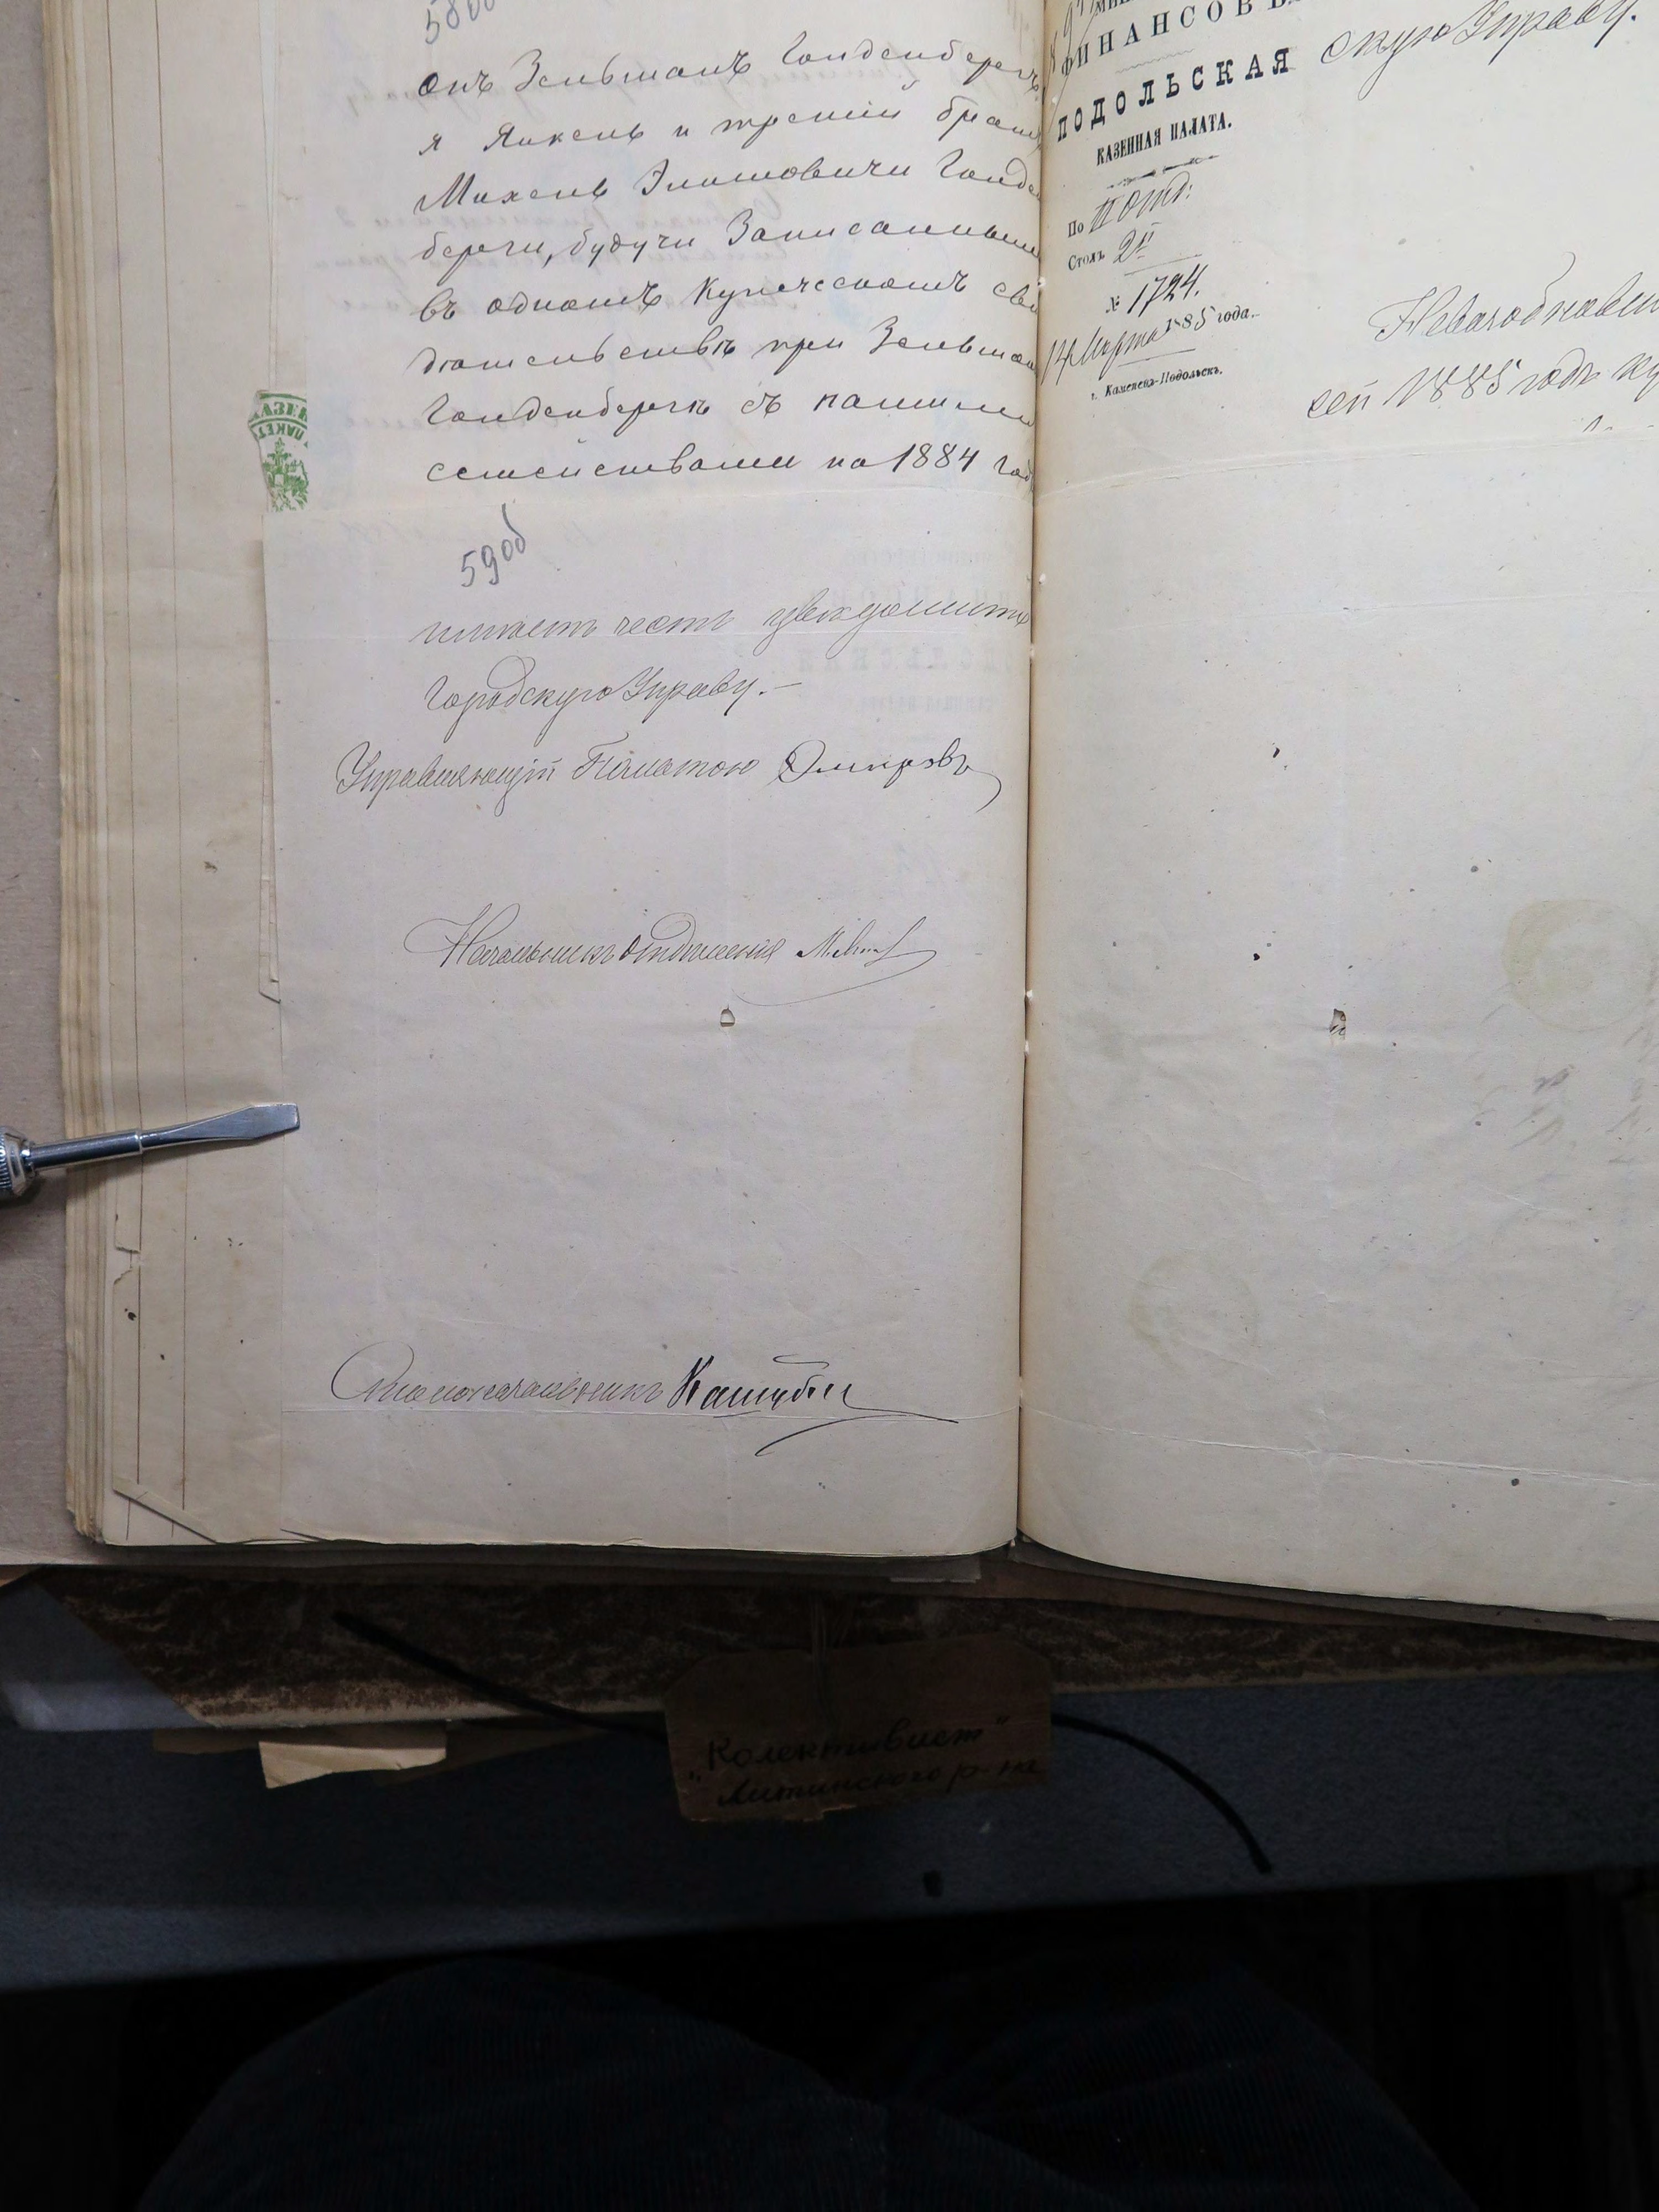 58об
онъ Зельманъ Гольденбергъ
я Янкель и третий братъ
Михель Элиовичи Гольде
берги, будучи Записанными
въ одномъ Купеческомъ сви
дѣтельствѣ при Зельман
Гольденбергѣ съ нашими
семействами на 1884 год
59об
имѣетъ честь увѣдомить
Городскую Управу.—
Управляющій Палатою
Начальникъ Отдѣленія
Столоначальникъ
ФИНАНСОВЪ
ПОДОЛЬСКАЯ
КАЗЕННАЯ ПАЛАТА.
По II отд:
Столъ 2й
№ 1724.
14 Марта 1885 года.
г. Каменецъ-Подольскъ.
скую Управу.
сей 1885 годъ
КАЗЕН
ПАКЕТ
„Колективист"
Литинского р-на